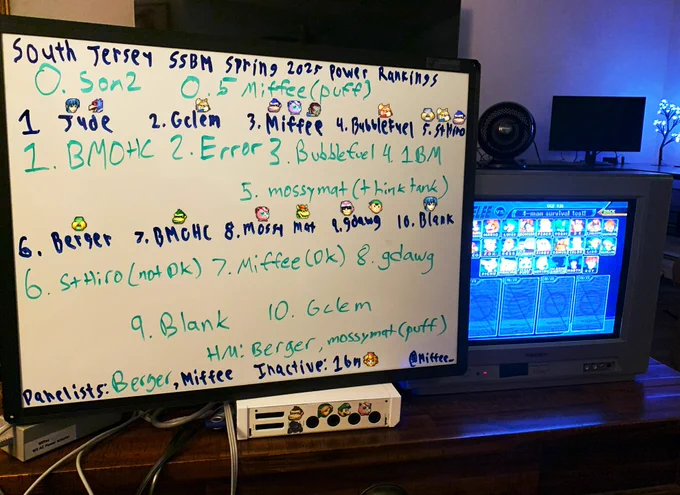 South Jersey SSBM Spring 2025 Power Rankings
0. Son2 0.5 Miffee (puff)
1 Jude 2. Gclem 3. Miffee 4. Bubblefuel 5. StHiro
1. BMOHC 2. Error 3. Bubblefuel 4. 1BM
5. mossymat (think tank)
6. Berger 7. BMOHC 8. Mossy Mat 9. gdawg 10. Blank
6. StHiro (not DK) 7. Miffee (DK) 8. gdawg
9. Blank 10. Gclem
HM: Berger, mossymat (puff)
Panelists: Berger, Miffee Inactive: 1bm @Miffee_
4-man survival test!
BACK